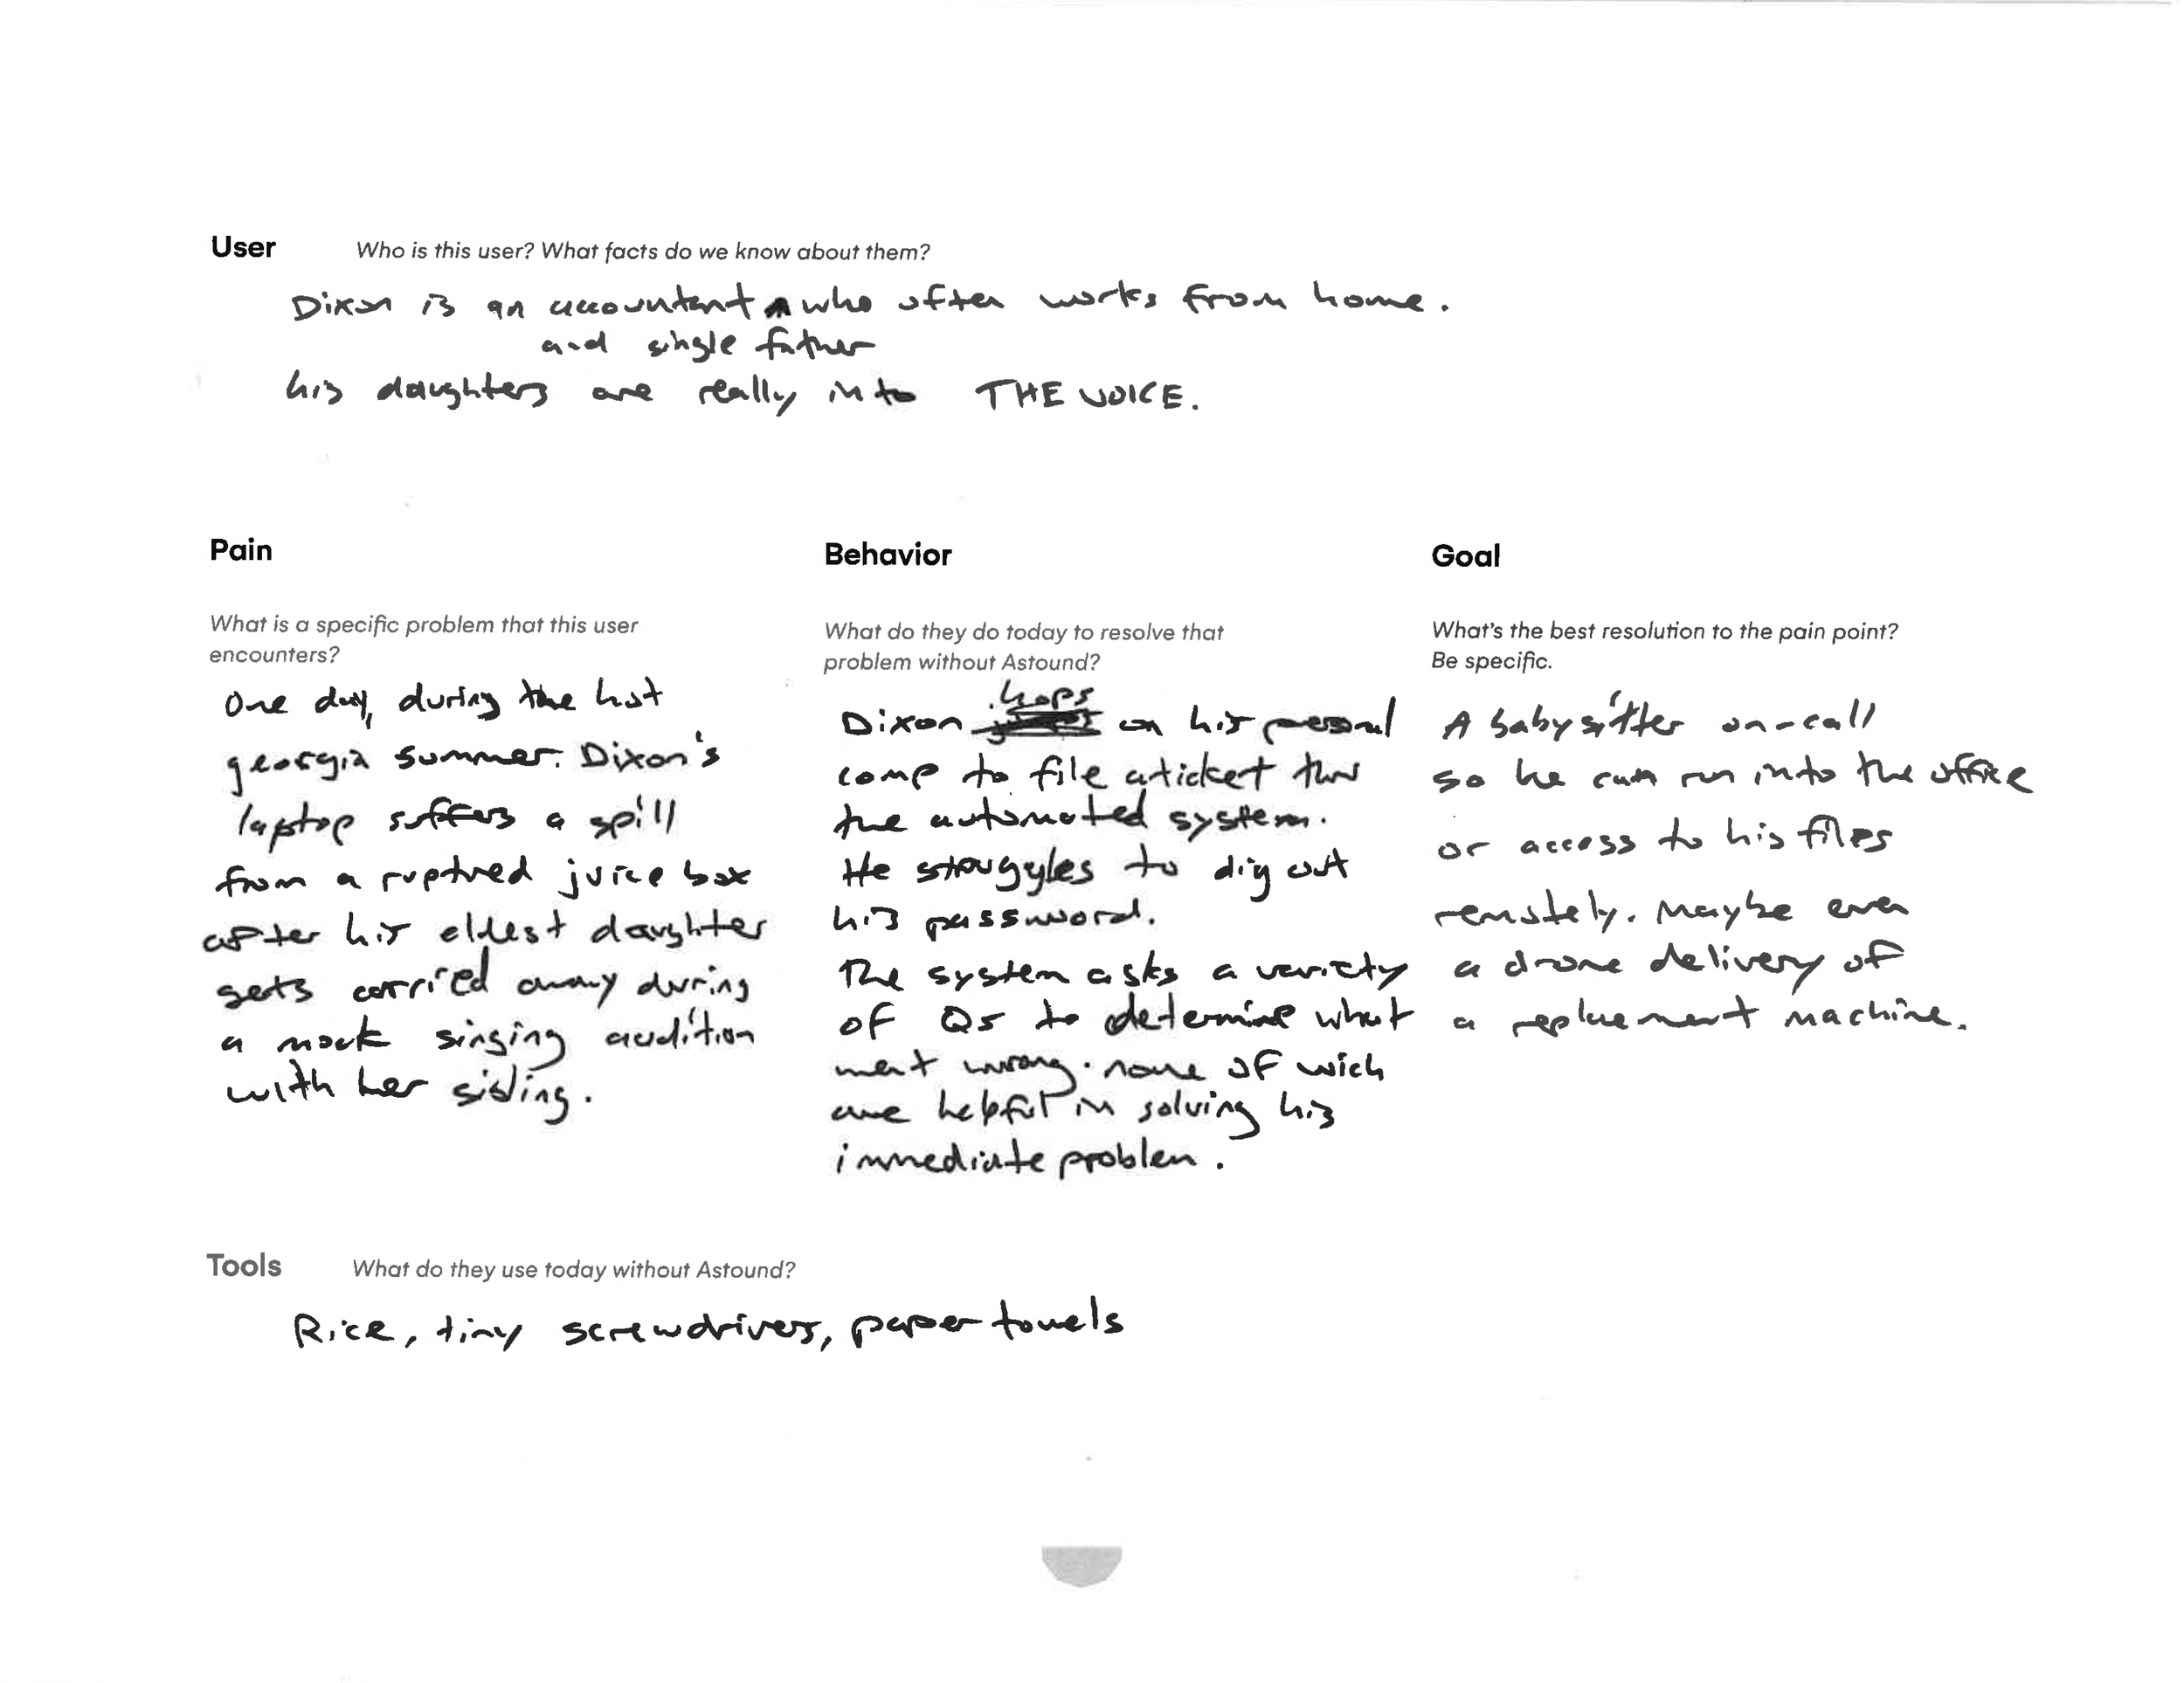 User Who is this user? What facts do we know about them?
Dixon is an accountant ^ who often works from home.
and single father
his daughters are really into THE VOICE.
Pain
What is a specific problem that this user
encounters?
One day, during the hot
georgia summer. Dixon's
laptop suffers a spill
from a ruptured juice box
after his eldest daughter
gets carried away during
a mock singing audition
with her sibling.
Behavior
What do they do today to resolve that
problem without Astound?
hops
Dixon on his personal
comp to file a ticket thru
the automated system.
He struggles to dig out
his password.
The system asks a variety
of Qs to determine what
went wrong. none of wich
are helpful in solving his
immediate problem.
Goal
What's the best resolution to the pain point?
Be specific.
A babysitter on-call
so he can run into the office
or access to his files
remotely. Maybe even
a drone delivery of
a replacement machine.
Tools What do they use today without Astound?
Rice, tiny screwdrivers, paper towels